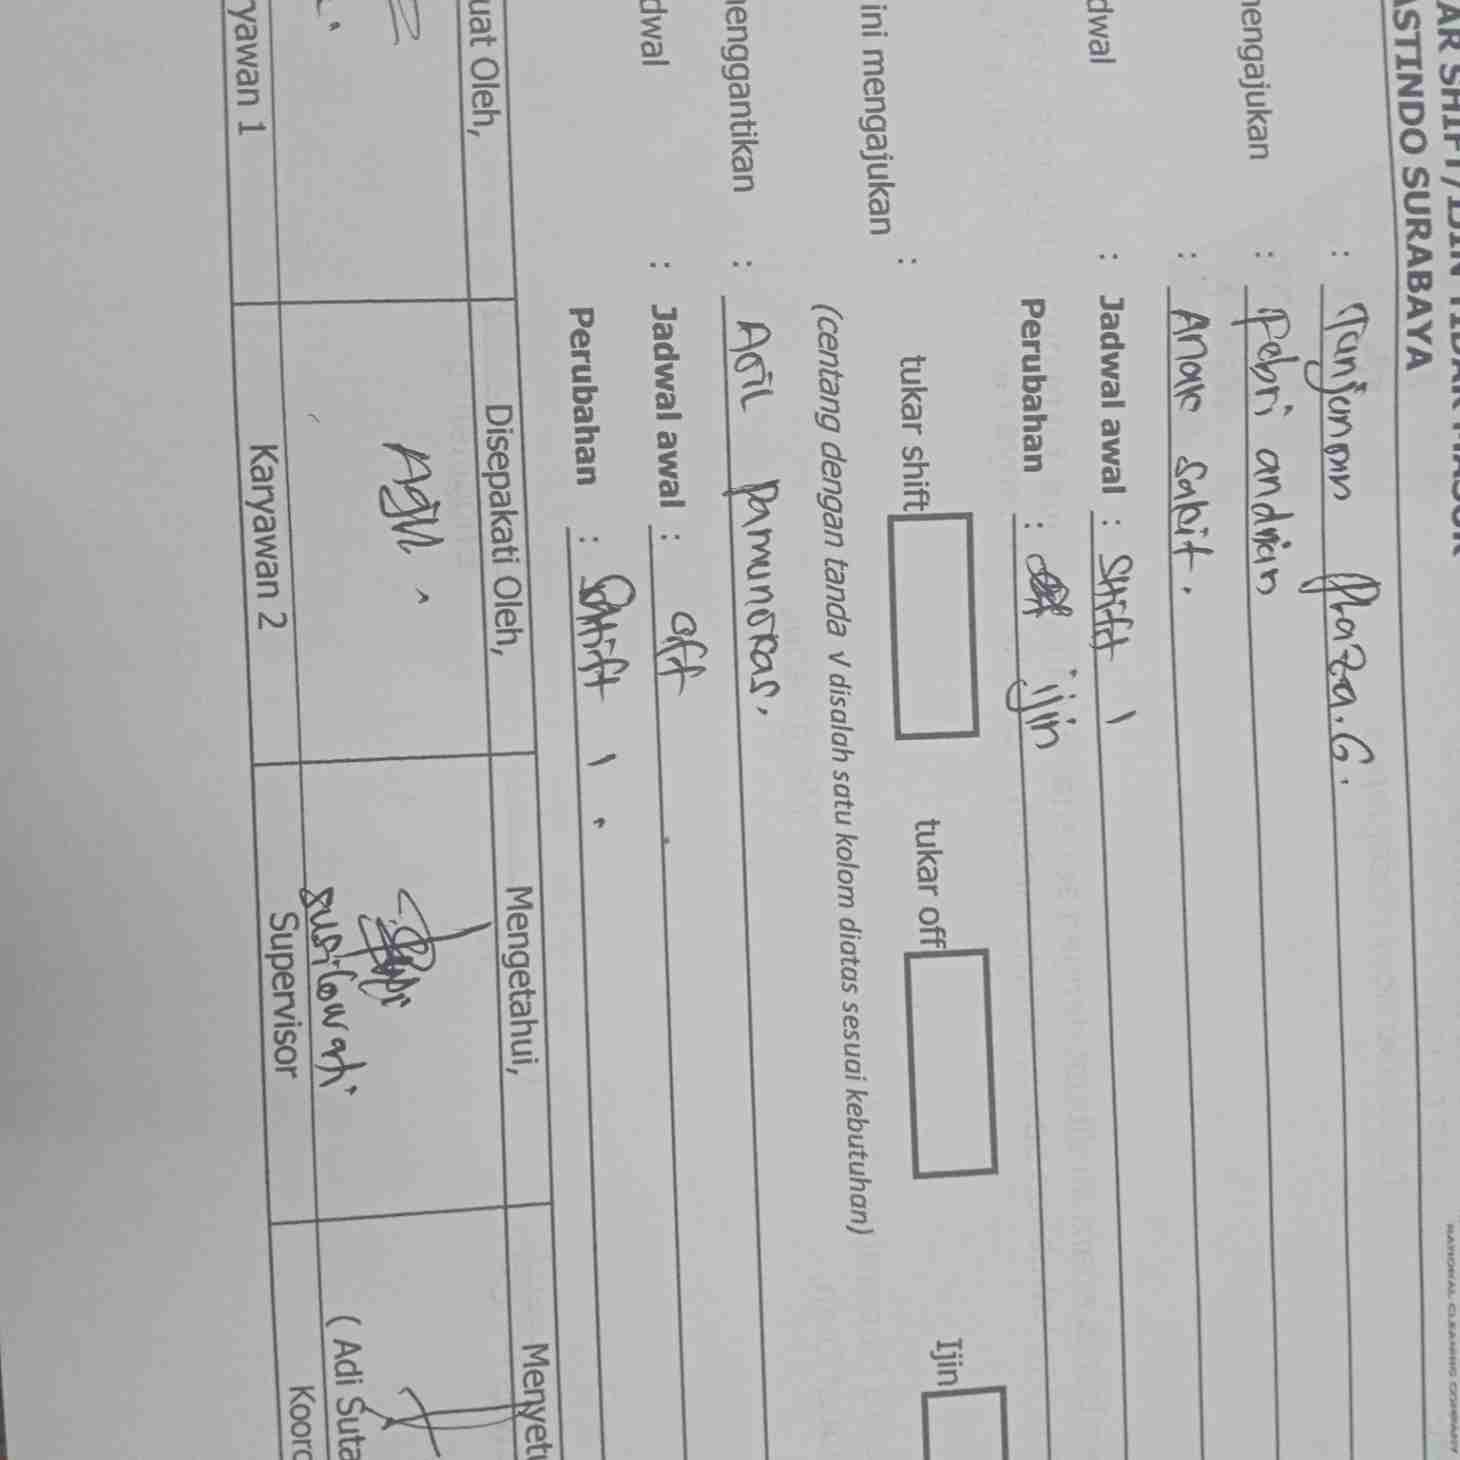 AR SHIFT/IJIN TIDAK MASUK
ASTINDO SURABAYA
NATIONAL CLEANING COMPANY
: Tunjungan Plaza. 6.
engajukan : Febri andrian
: Anak Sakit.
dwal : Jadwal awal : Shift 1
Perubahan : ijin
ini mengajukan : tukar shift tukar off Ijin
(centang dengan tanda √ disalah satu kolom diatas sesuai kebutuhan)
enggantikan : Agil Pamungkas.
dwal : Jadwal awal : off
Perubahan : Shift 1.
uat Oleh, Disepakati Oleh, Mengetahui, Menyetu
Agil.
susilowati. ( Adi Suta
yawan 1 Karyawan 2 Supervisor Koord